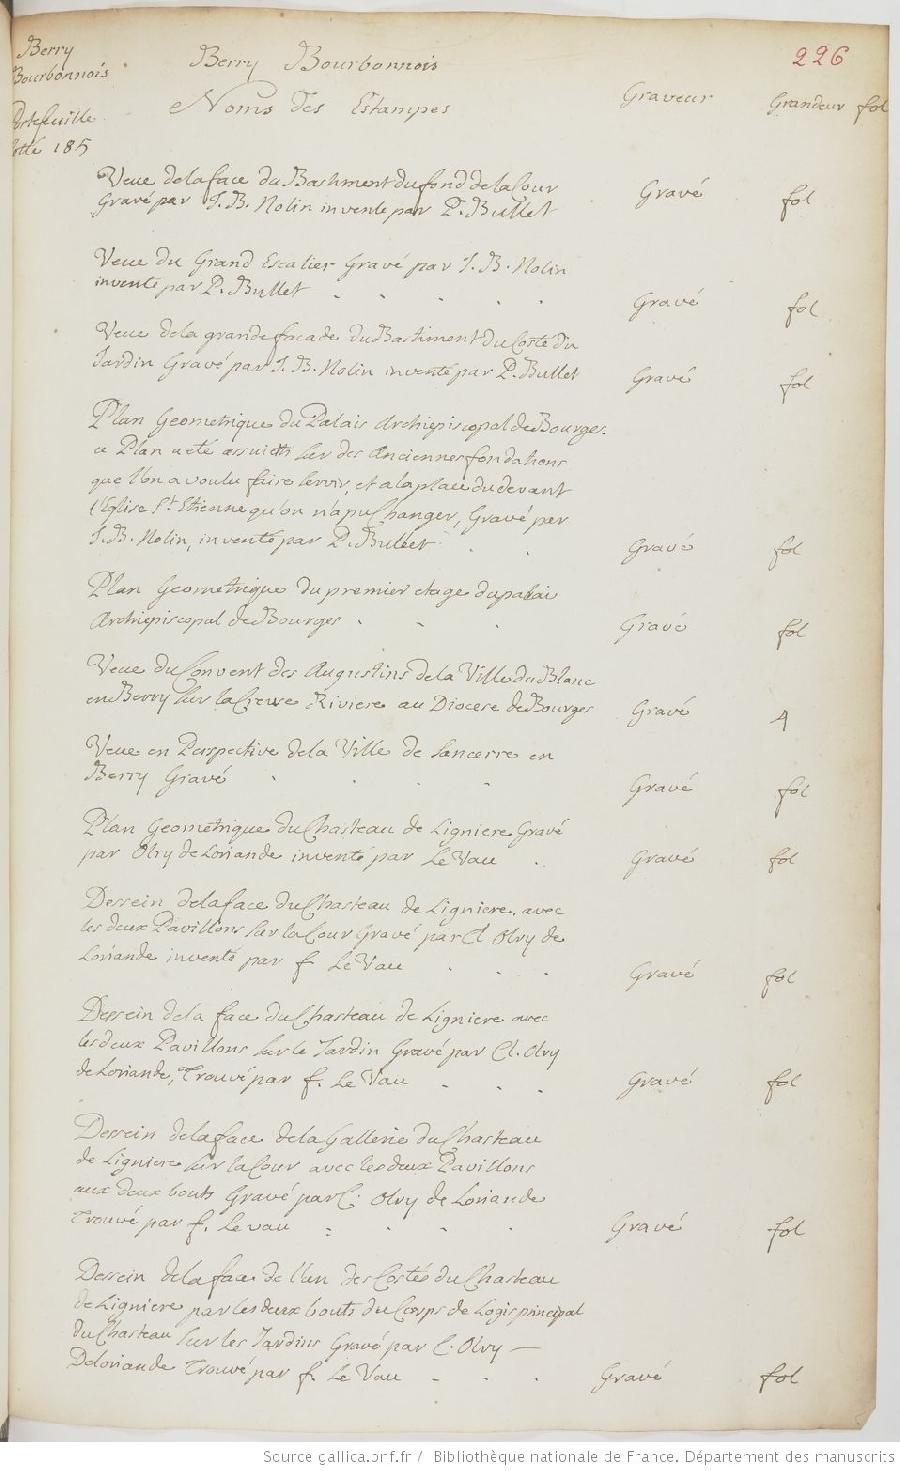 Berry
Bourbonnois
Portefeuille
Cotté 185
Berry Bourbonnois
226
Noms des Estampes
Graveur
Grandeur fol
Veue de la face du Bastiment du fond de la Cour
Gravé par J. B. Nolin inventé par P. Bullet
Gravé fol
Veue du Grand Escalier Gravé par J. B. Nolin
inventé par P. Bullet
Gravé fol
Veue de la grande facade du Bastiment du Costé du
Jardin Gravé par J. B. Nolin inventé par P. Bullet
Gravé fol
Plan Geometrique du Palais Archiepiscopal de Bourges.
ce Plan a eté assuieti sur des Anciennes fondations
que l'on a voulu faire servir, et a la place du devant
l'Eglise St. Etienne qu'on n'a pu Changer, Gravé par
J. B. Nolin, inventé par P. Bullet
Gravé fol
Plan Geometrique du premier etage du palai
Archiepiscopal de Bourges
Gravé fol
Veue du Convent des Augustins de la Ville du Blanc
en Berry sur la Creuse Riviere au Diocese de Bourges
Gravé 4
Veue en Perspective de la Ville de Sancerre en
Berry Gravé
Gravé fol
Plan Geometrique du Chasteau de Ligniere Gravé
par Olry de Loriande inventé par Le Vau
Gravé fol
Dessein de la face du Chasteau de Ligniere, avec
les deux Pavillons sur la Cour Gravé par Cl Olry de
Loriande inventé par f. Le Vau
Gravé fol
Dessein de la face du Chasteau de Ligniere avec
les deux Pavillons sur le Jardin Gravé par Cl. Olry
de Loriande, Trouvé par f. Le Vau
Gravé fol
Dessein de la face de la Gallerie du Chasteau
de Ligniere sur la Cour avec les deux Pavillons
aux deux bouts Gravé par C. Olry de Loriande
Trouvé par f. Le vau
Gravé fol
Dessein de la face de l'un des Costés du Chasteau
de Ligniere par les deux bouts du Corps de Logis principal
du Chasteau sur les Jardins Gravé par C. Olry
De Loriande Trouvé par f. Le Vau
Gravé fol
Source gallica.bnf.fr / Bibliothèque nationale de France. Département des manuscrits